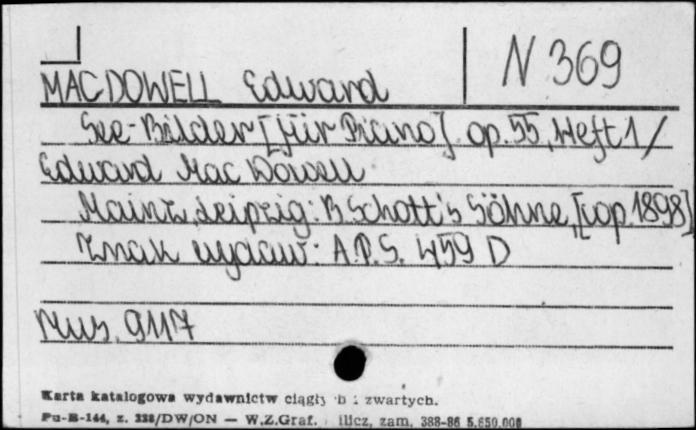 N 369
MAC DOWELL Edward
See-Bilder [für Piano]. op. 55, Heft 1 /
Edward Mac Dowell
Mainz, Leipzig: B. Schott's Söhne, [cop. 1898]
Znak wydaw: A.P.S. 459 D
Mus. 9117
Karta katalogowa wydawnictw ciągłych i zwartych.
Pu-B-144, z. 238/DW/ON — W.Z.Graf. zam. 388-86 5.650.000